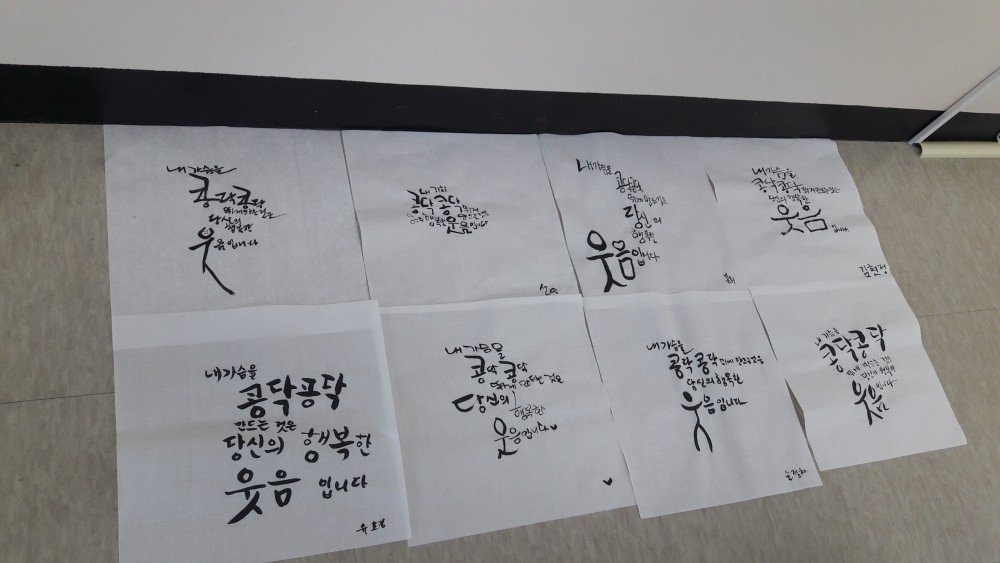 내 가슴을
콩닥콩닥
뛰게 하는 것은
당신의
행복한
웃음입니다
콩닥콩닥
웃음입니다
내 가슴을
콩닥콩닥
당신의
행복한
웃음입니다
내 가슴을
콩닥콩닥
당신의 행복한
웃음입니다
김현정
내 가슴을
콩닥콩닥
만드는 것은
당신의 행복한
웃음 입니다
내 가슴을
콩닥콩닥
뛰게 만드는 것은
당신의
행복한
웃음입니다
내 가슴을
콩닥콩닥
당신의 행복한
웃음입니다
내 가슴을
콩닥콩닥
당신의 행복한
웃음입니다